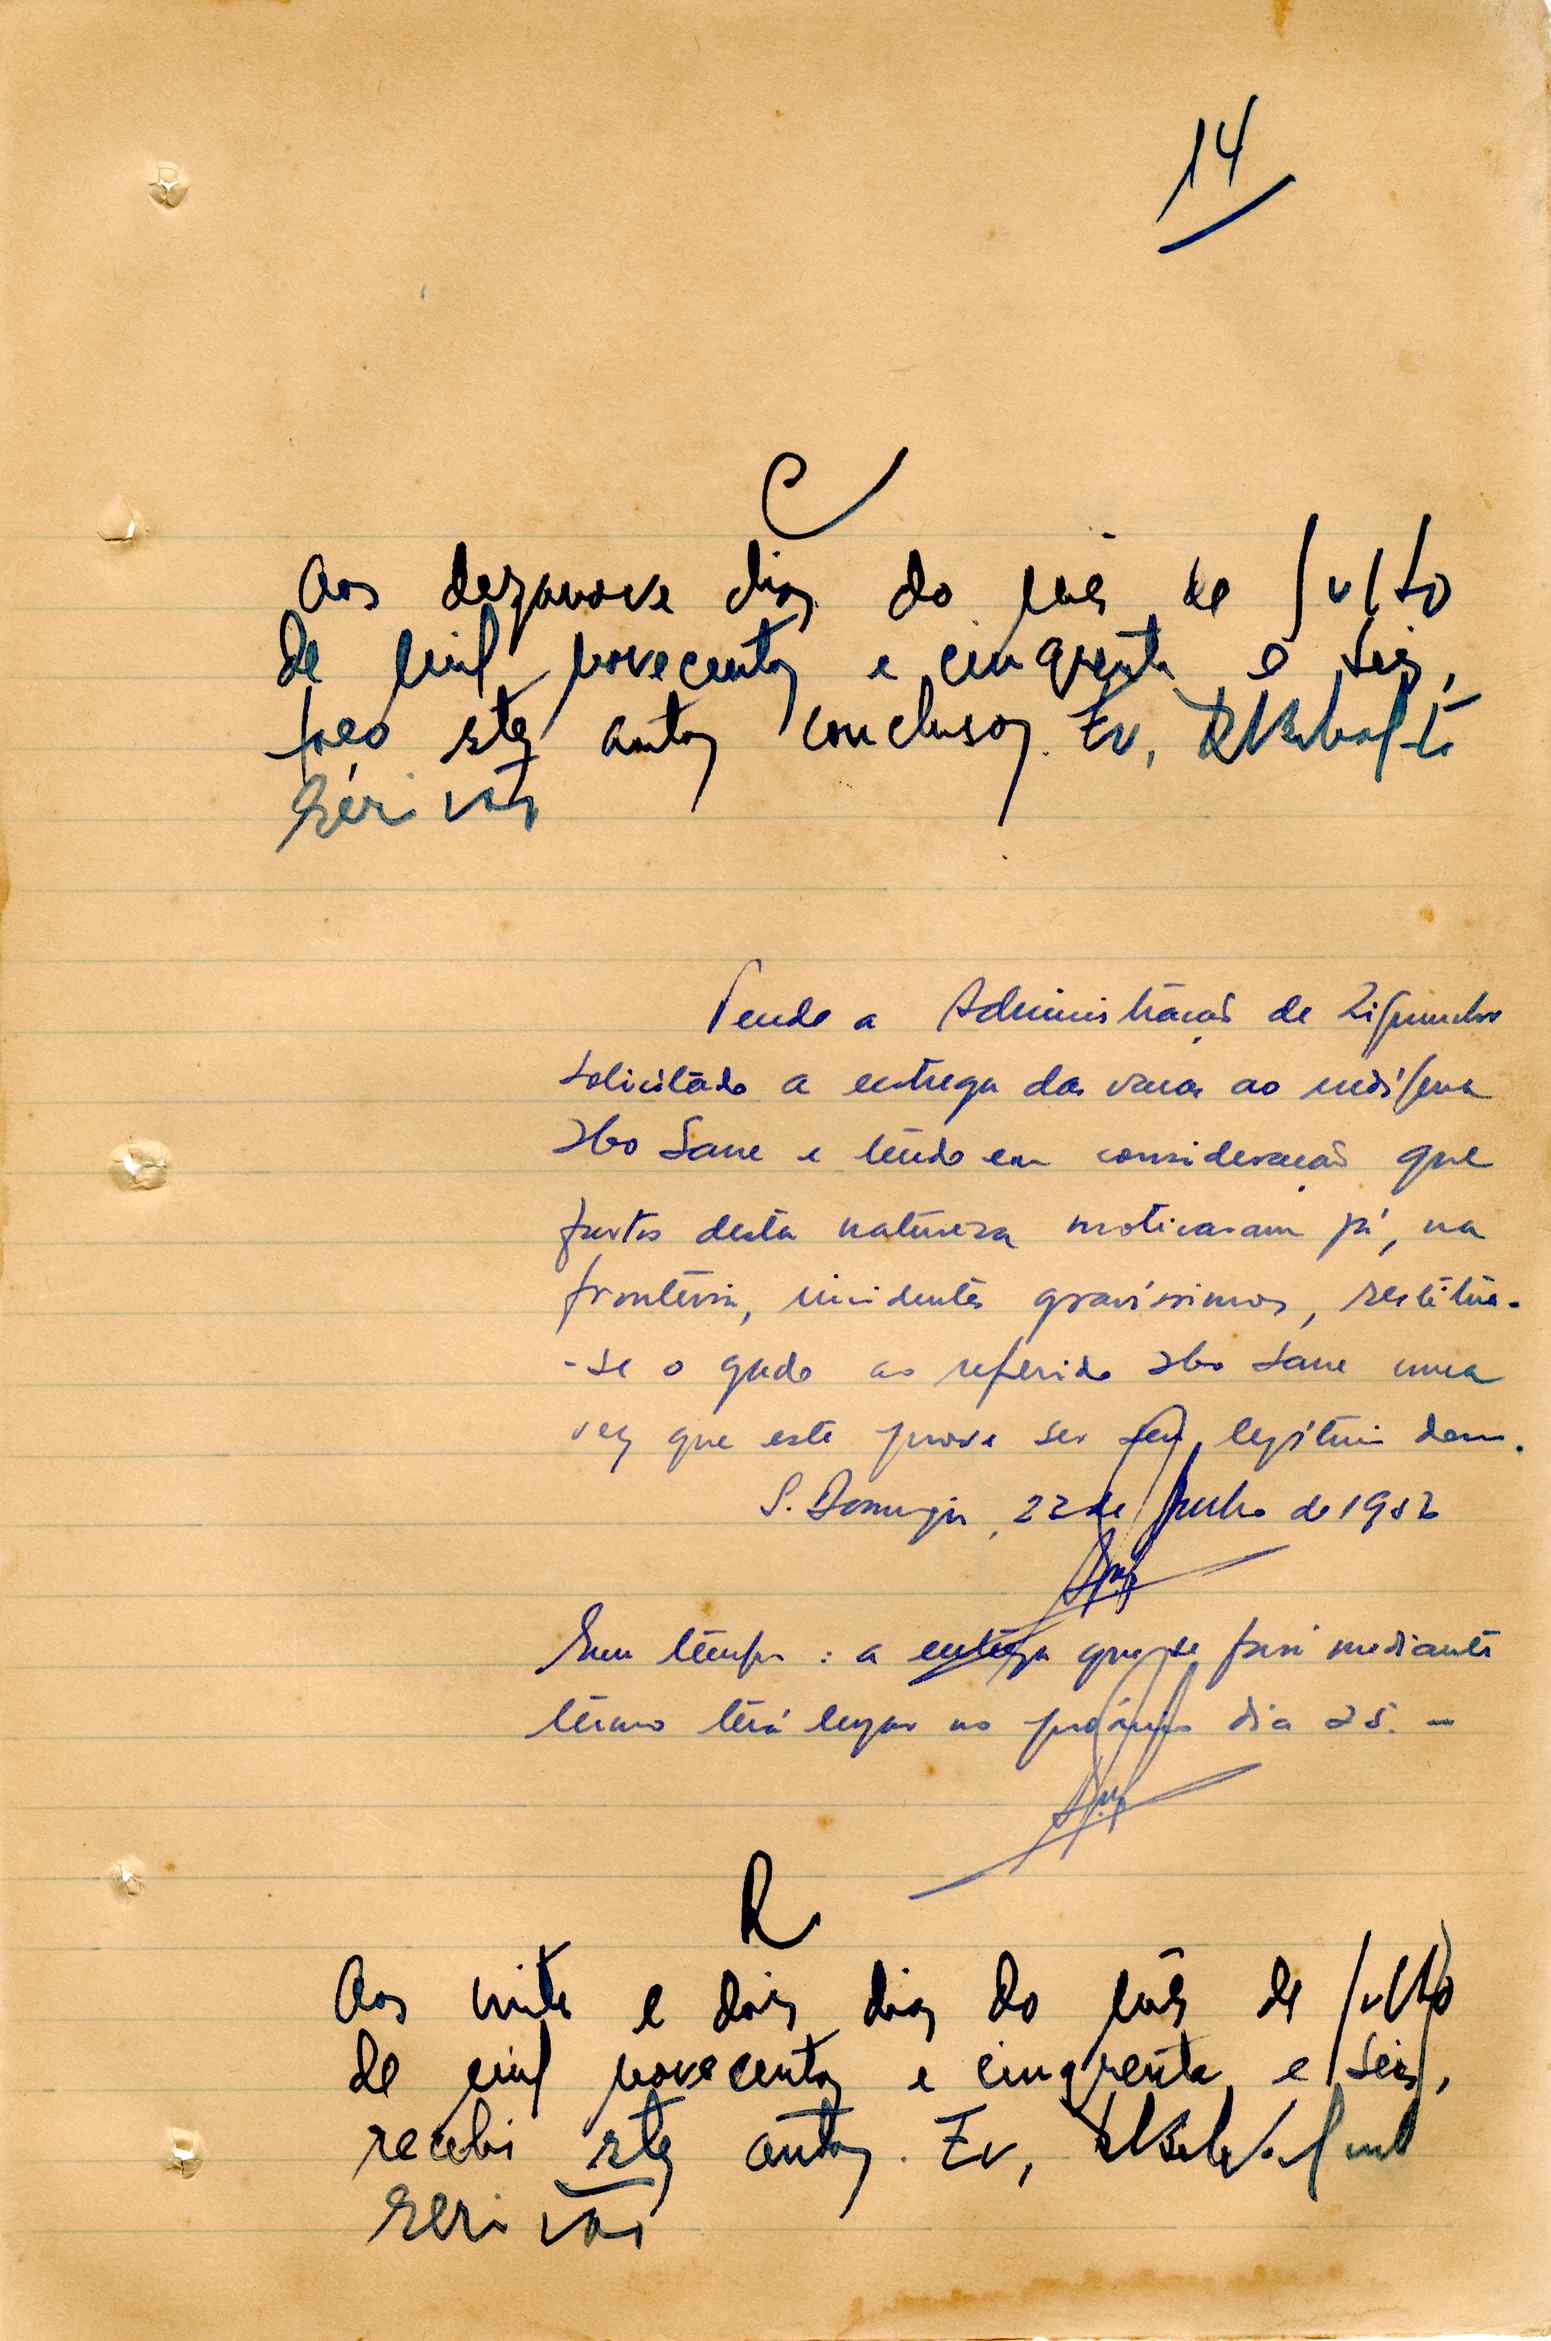 14
C
Aos dezanove dias do mês de Julho
de mil novecentos e cinqüenta e seis,
faço estes autos conclusos. Eu,
escrivão
Tendo a Administração de
solicitado a entrega das vacas ao indígena
Ibo Sane e tendo em consideração que
furtos desta natureza motivaram já, na
fronteira, incidentes gravíssimos, restitua-
-se o gado ao referido Ibo Sane uma
vez que este prove ser seu legítimo dono.
S. Domingos, 22 de Julho de
Em tempo: a entrega que se fará mediante
têrmo terá lugar no próximo dia 25. -
R
Aos vinte e dois dias do mês de Julho
de mil novecentos e cinqüenta e seis,
recebi estes autos. Eu,
escrivão